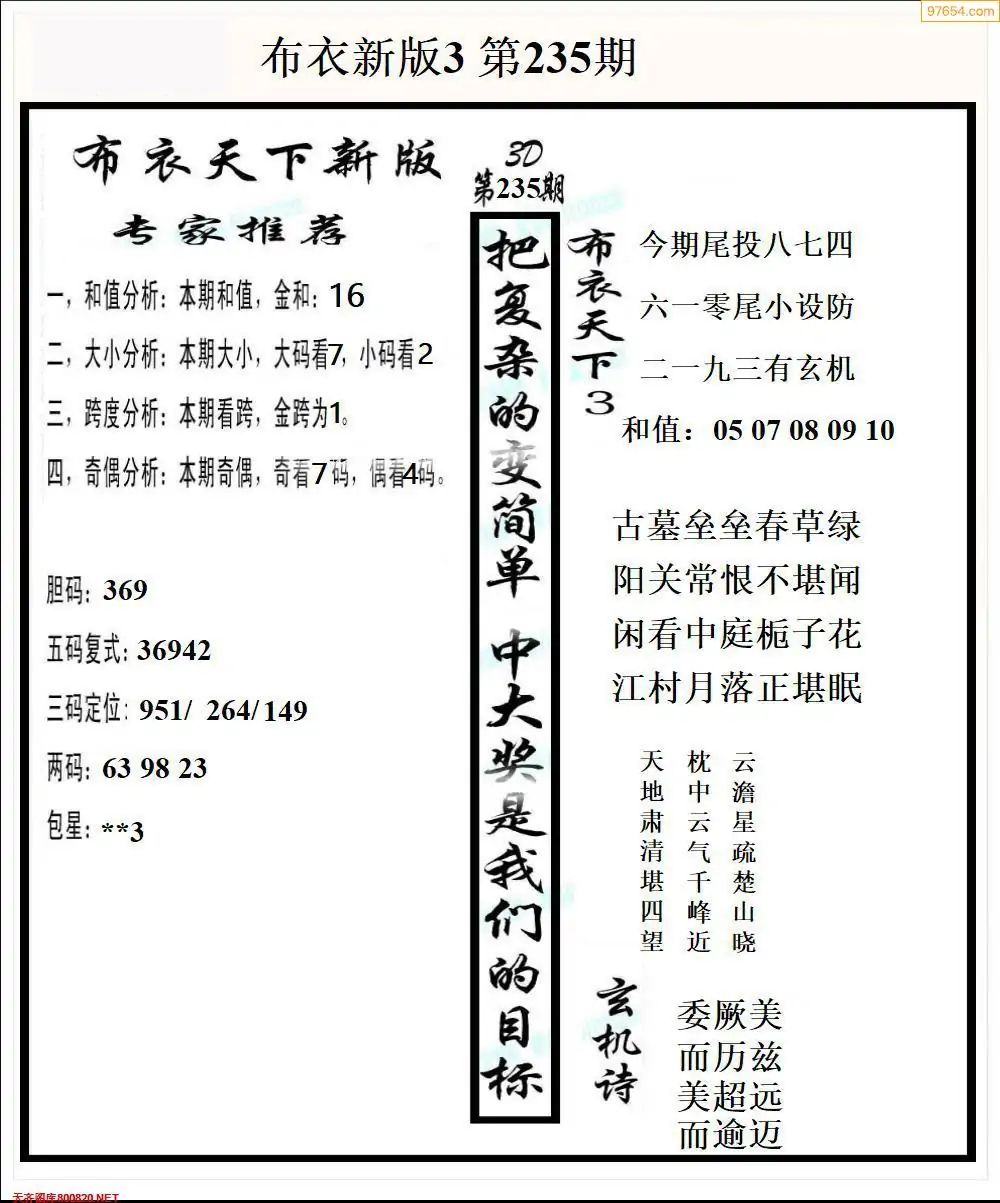 97654.com
布衣新版3 第235期
布衣天下新版
专家推荐
一，和值分析：本期和值，金和：16
二，大小分析：本期大小，大码看7，小码看2
三，跨度分析：本期看跨，金跨为1。
四，奇偶分析：本期奇偶，奇看7码，偶看4码。
胆码：369
五码复式：36942
三码定位：951/ 264/149
两码：63 98 23
包星：**3
3D
第235期
把复杂的变简单 中大奖是我们的目标
布衣天下3
今期尾投八七四
六一零尾小设防
二一九三有玄机
和值：05 07 08 09 10
古墓垒垒春草绿
阳关常恨不堪闻
闲看中庭栀子花
江村月落正堪眠
天地肃清堪四望
枕中云气千峰近
云澹星疏楚山晓
玄机诗
委厥美
而历兹
美超远
而逾迈
天齐图库800820.NET